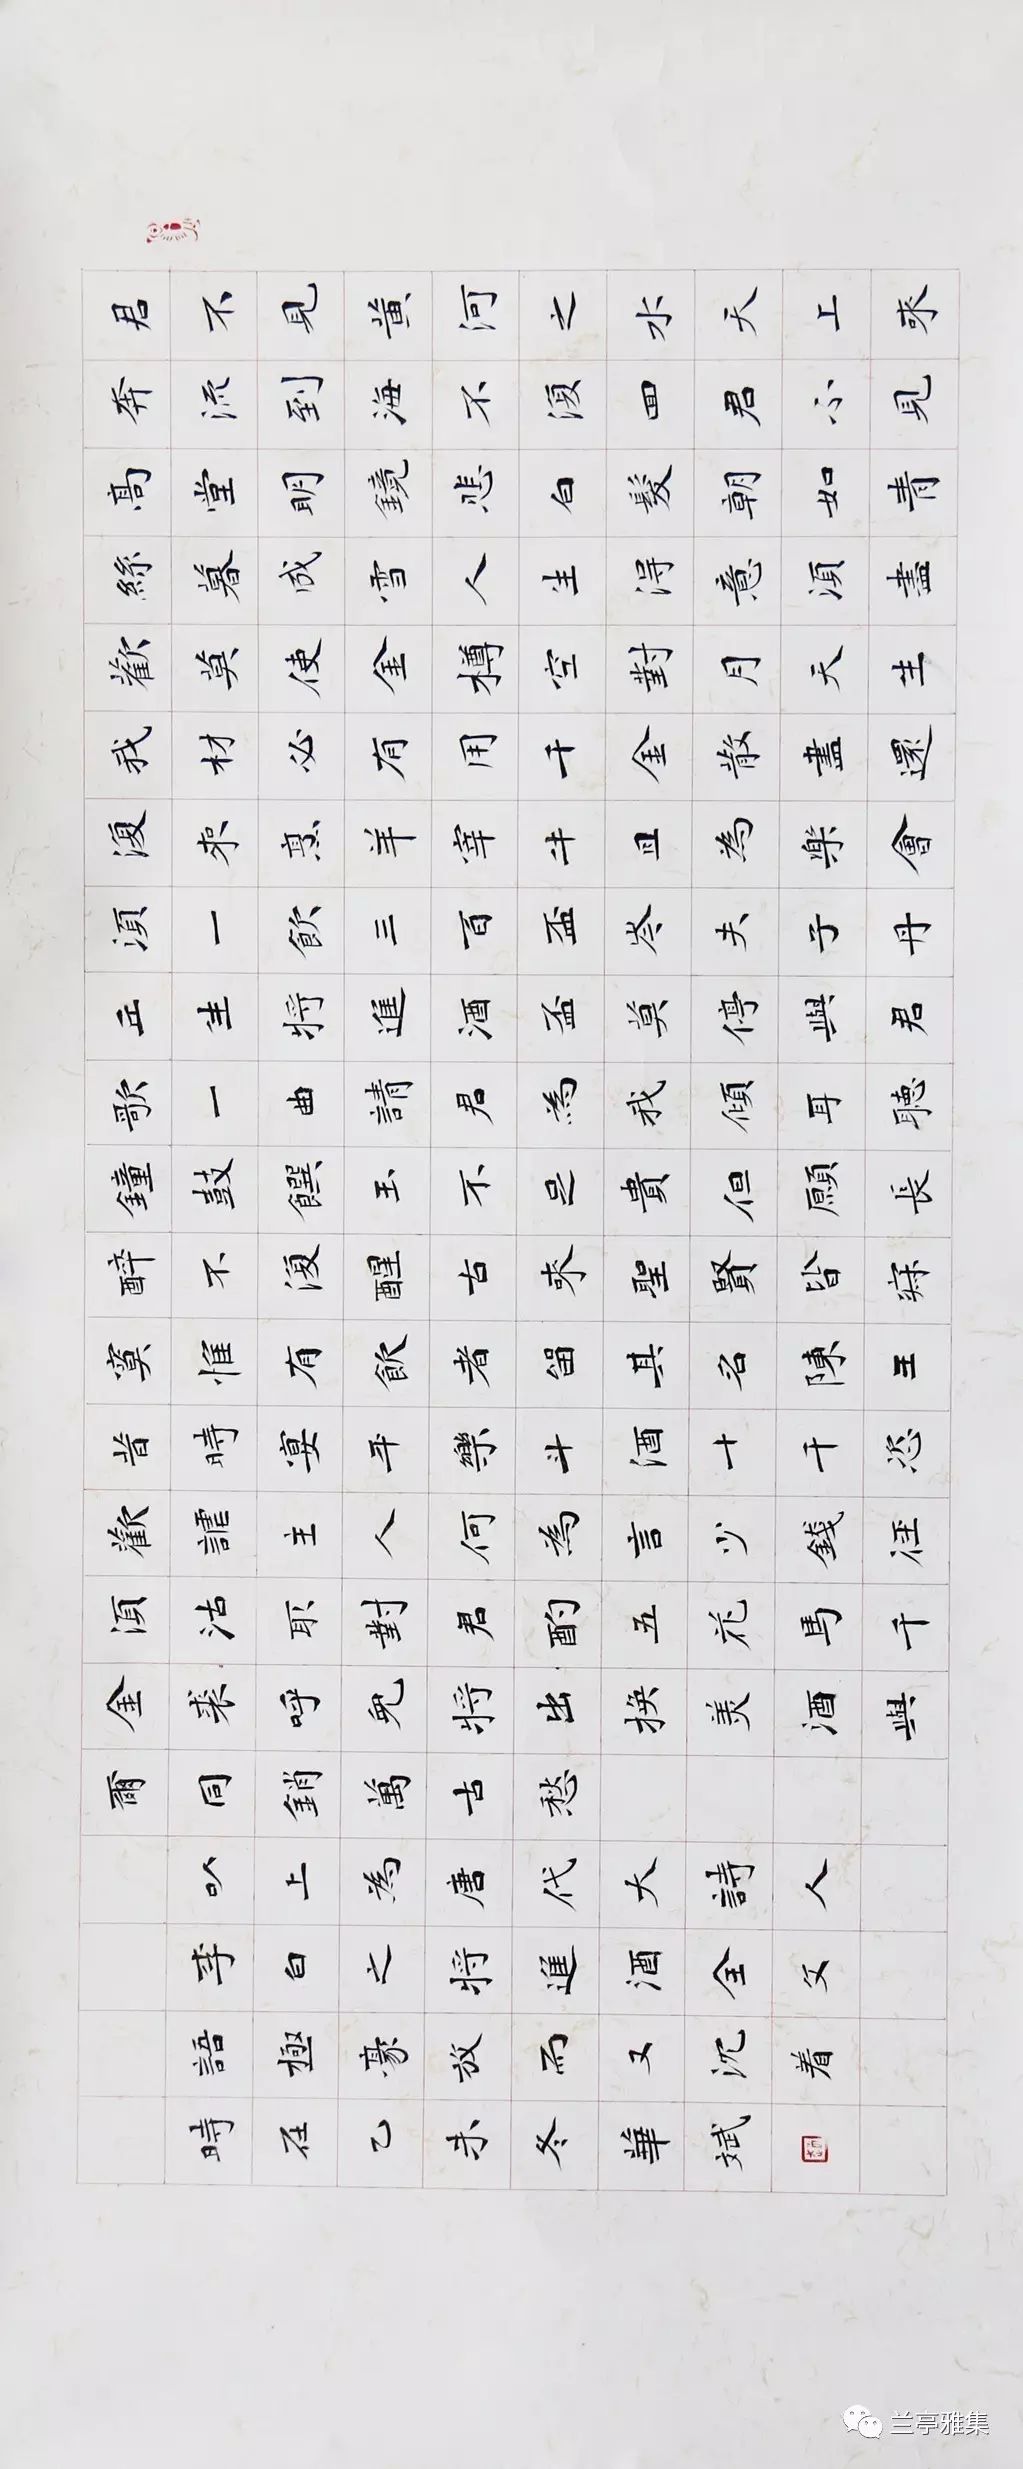 君不見黄河之水天上來
奔流到海不復囬君不見
高堂明鏡悲白髮朝如青
絲暮成雪人生得意須盡
歡莫使金樽空對月天生
我材必有用千金散盡還
復來烹羊宰牛且為樂會
須一飲三百盃岑夫子丹
丘生將進酒盃莫停與君
歌一曲請君為我傾耳聽
鐘鼓饌玉不足貴但願長
醉不復醒古來聖賢皆寂
寞惟有飲者留其名陳王
昔時宴平樂斗酒十千恣
歡謔主人何為言少錢徑
須沽取對君酌五花馬千
金裘呼兒將出換美酒與
爾同銷萬古愁
以上為唐代大詩人
李白之將進酒全文
語極豪放而又沉着
時在乙未冬華斌
兰亭雅集